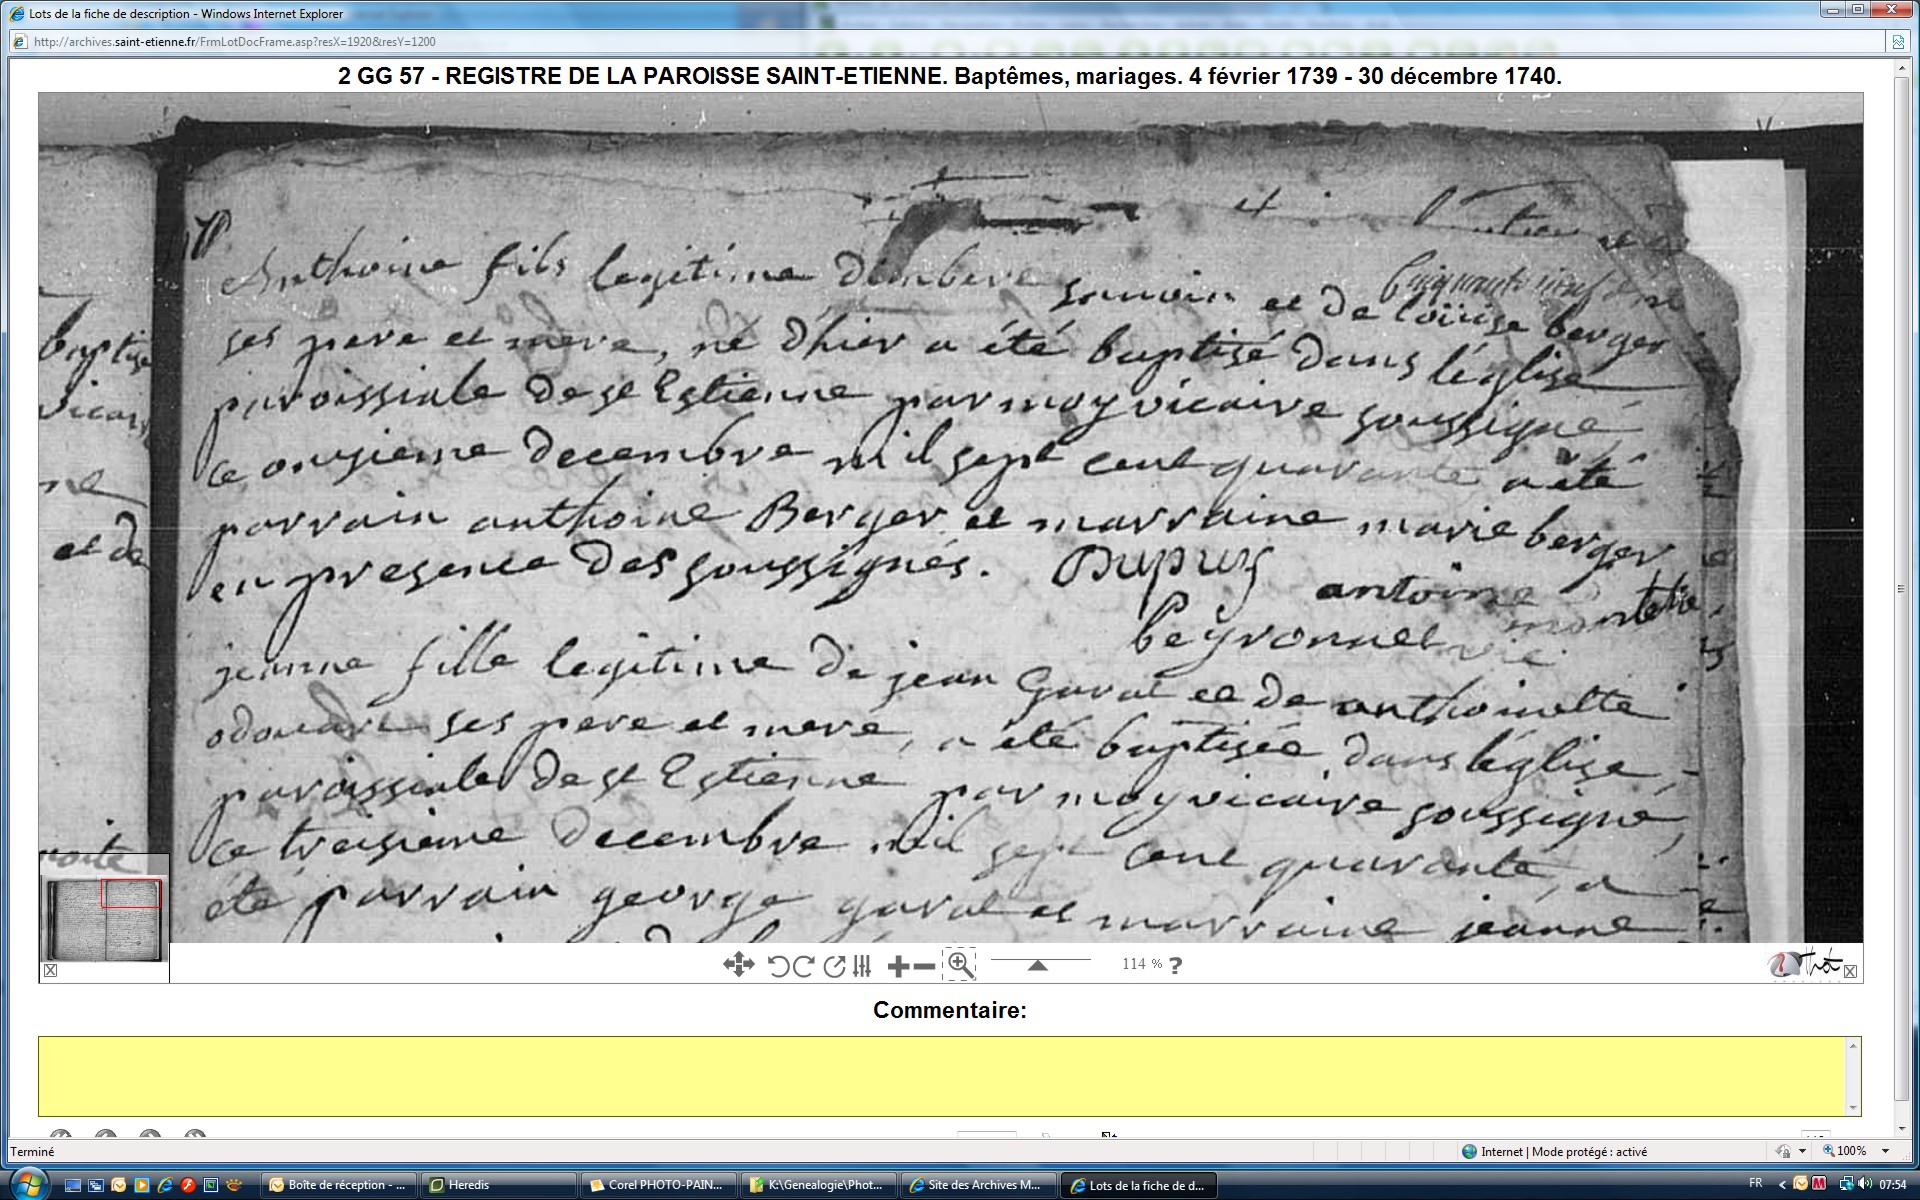 Lots de la fiche de description - Windows Internet Explorer
http://archives.saint-etienne.fr/FrmLotDocFrame.asp?resX=1920&resY=1200
2 GG 57 - REGISTRE DE LA PAROISSE SAINT-ETIENNE. Baptêmes, mariages. 4 février 1739 - 30 décembre 1740.
Cinquante neuf
Anthoine fils legitime et de loüise berger
ses pere et mere, né d'hier a été baptisé dans l'église
paroissiale de st Estienne par moy vicaire soussigné,
ce onzieme decembre mil sept cent quarante a été
parrain anthoine Berger et marraine marie berger
en presence des soussignés. Dupuy antoine
peyronnet vic
jeanne fille legitime de jean Gavat et de anthoinette
odouard ses pere et mere, a été baptisée dans l'église
paroissiale de st Estienne par moy vicaire soussigné,
ce troisieme decembre mil sept cent quarante, a
été parrain george gavat et marraine jeanne
baptisé
vicai
et de
114 % ?
Commentaire:
Terminé
Internet | Mode protégé : activé
100%
Boîte de réception - ...
Heredis
Corel PHOTO-PAIN...
K:\Genealogie\Phot...
Site des Archives M...
Lots de la fiche de d...
FR
07:54